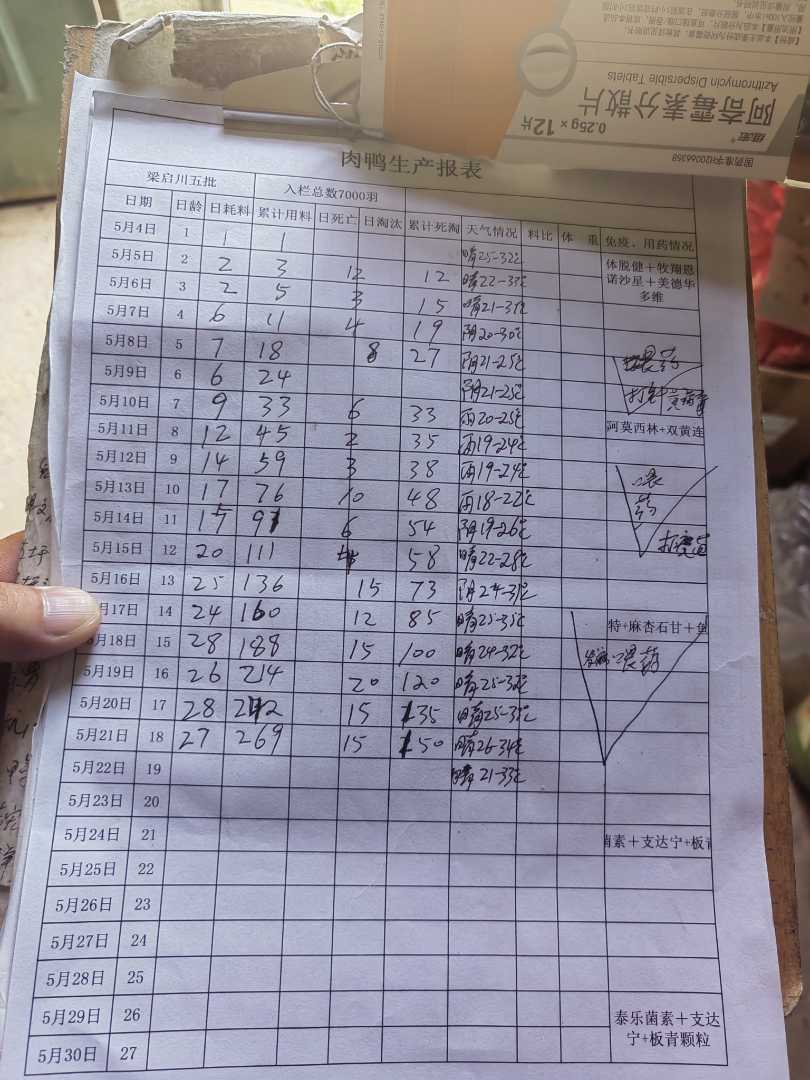 国药准字H20066358
0.25g×12片
阿奇霉素分散片
Azithromycin Dispersible Tablets
肉鸭生产报表
梁启川五批 入栏总数7000羽
日期 日龄 日耗料 累计用料 日死亡 日淘汰 累计死淘 天气情况 料比 体 重 免疫、用药情况
5月4日 1 1 1 晴25-32℃
5月5日 2 2 3 12 12 晴22-33℃ 体脱健+牧翔恩诺沙星+美德华多维
5月6日 3 2 5 3 15 晴21-31℃
5月7日 4 6 11 4 19 阴20-30℃
5月8日 5 7 18 8 27 阴21-25℃ 喂药
5月9日 6 6 24 阴21-25℃ 打针
5月10日 7 9 33 6 33 雨20-25℃
5月11日 8 12 45 2 35 雨19-24℃ 阿莫西林+双黄连
5月12日 9 14 59 3 38 雨19-24℃
5月13日 10 17 76 10 48 雨18-22℃ 喂药
5月14日 11 15 91 6 54 阴19-26℃
5月15日 12 20 111 4 58 晴22-28℃
5月16日 13 25 136 15 73 阴24-31℃
5月17日 14 24 160 12 85 晴25-35℃ 特+麻杏石甘+鱼
5月18日 15 28 188 15 100 晴24-32℃ 喂药
5月19日 16 26 214 20 120 晴25-32℃
5月20日 17 28 242 15 135 晴25-35℃
5月21日 18 27 269 15 150 晴26-34℃
5月22日 19 晴21-33℃
5月23日 20
5月24日 21 菌素+支达宁+板青
5月25日 22
5月26日 23
5月27日 24
5月28日 25
5月29日 26 泰乐菌素+支达宁+板青颗粒
5月30日 27